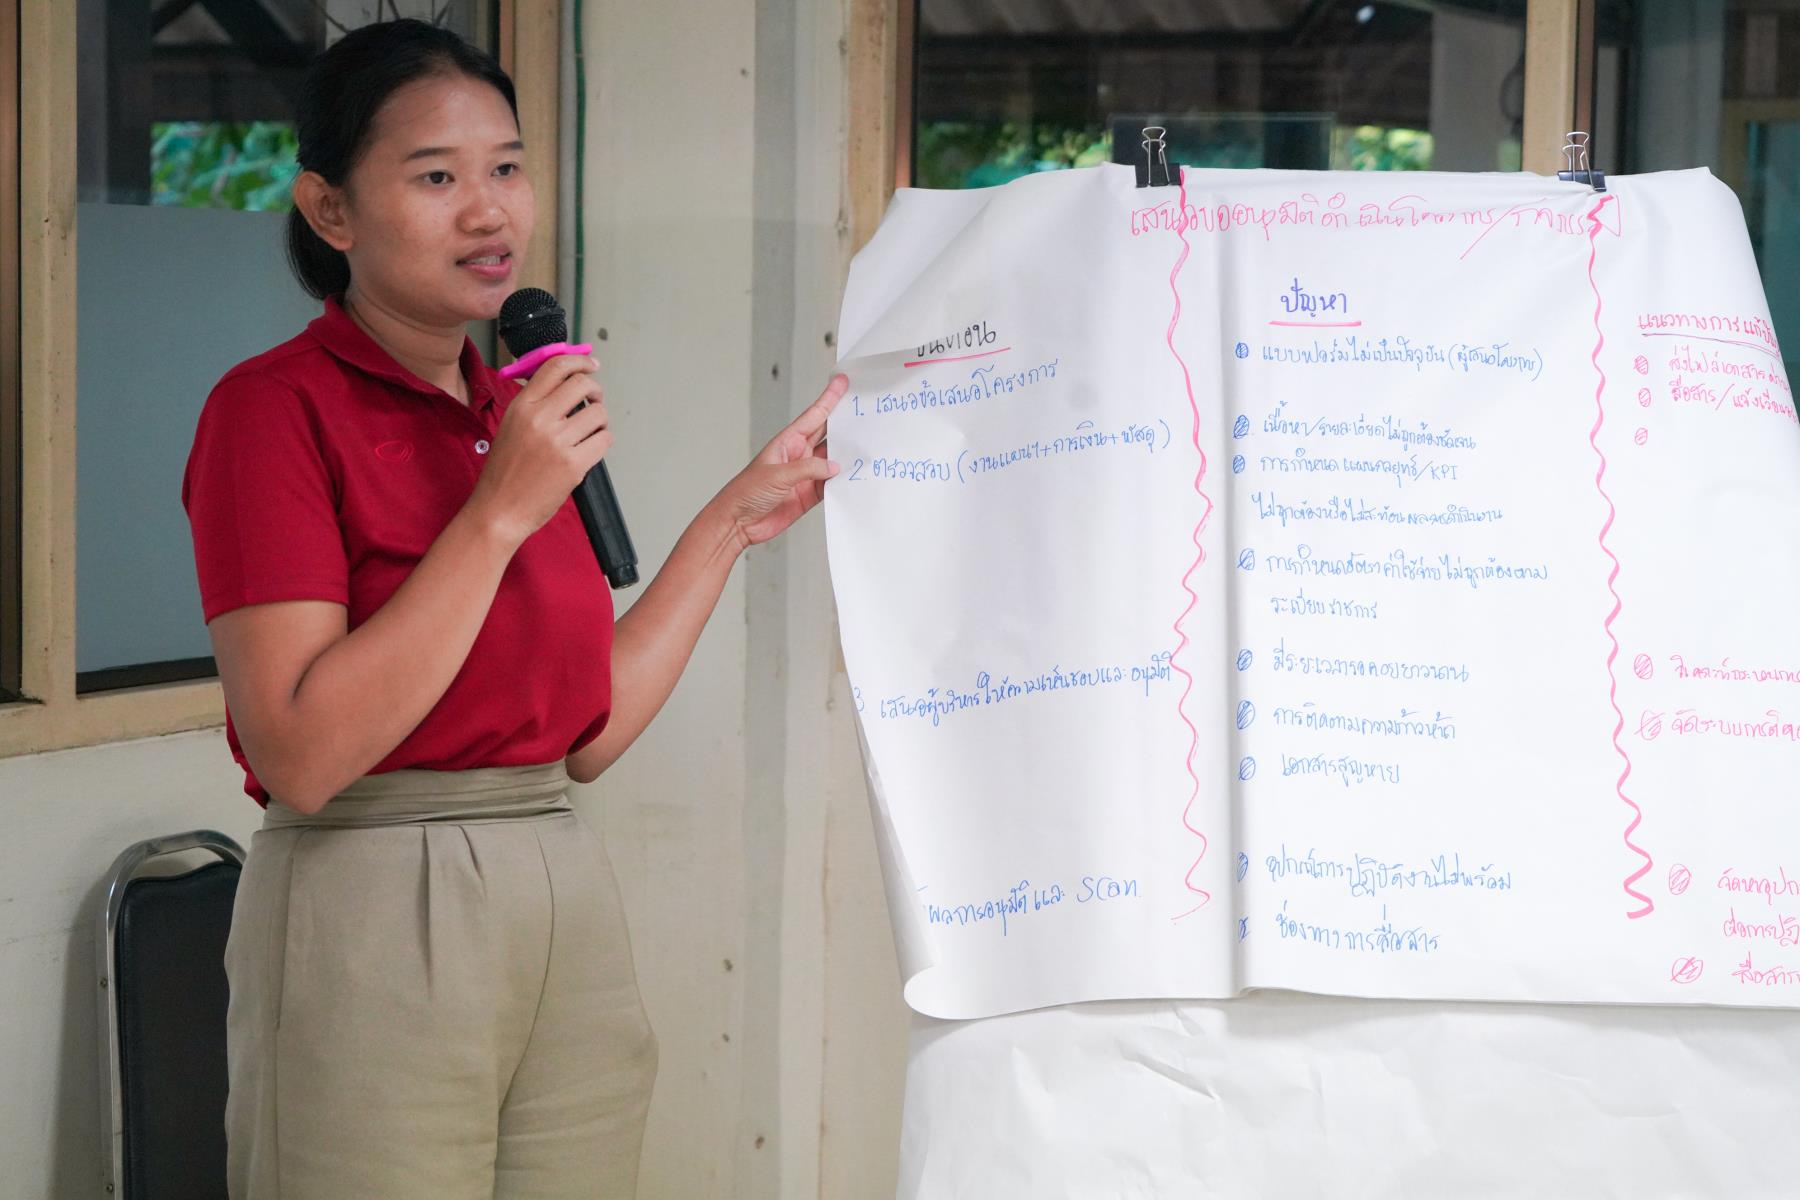 เสนอขออนุมัติดำเนินโครงการ/กิจกรรม
ขั้นตอน
1. เสนอข้อเสนอโครงการ
2. ตรวจสอบ (งานแผนฯ+การเงิน+พัสดุ)
3. เสนอผู้บริหารให้ความเห็นชอบและอนุมัติ
ผลการอนุมัติและ scan.
ปัญหา
แบบฟอร์มไม่เป็นปัจจุบัน (ผู้เสนอโครงการ)
เนื้อหา/รายละเอียดไม่ถูกต้องชัดเจน
การกำหนดแผนกลยุทธ์/KPI
ไม่ถูกต้องหรือไม่สะท้อนผลการดำเนินงาน
การกำหนดอัตราค่าใช้จ่ายไม่ถูกต้องตาม
ระเบียบราชการ
มีระยะเวลารอคอยยาวนาน
การติดตามความก้าวหน้า
เอกสารสูญหาย
อุปกรณ์การปฏิบัติงานไม่พร้อม
ช่องทางการสื่อสาร
แนวทางการแก้ปั
ส่งไฟล์เอกสาร
สื่อสาร/แจ้งเวียน
วิเคราะห์กระบวนการ
จัดระบบการติด
จัดหาอุปก
ต่อการปฏิ
สื่อสาร